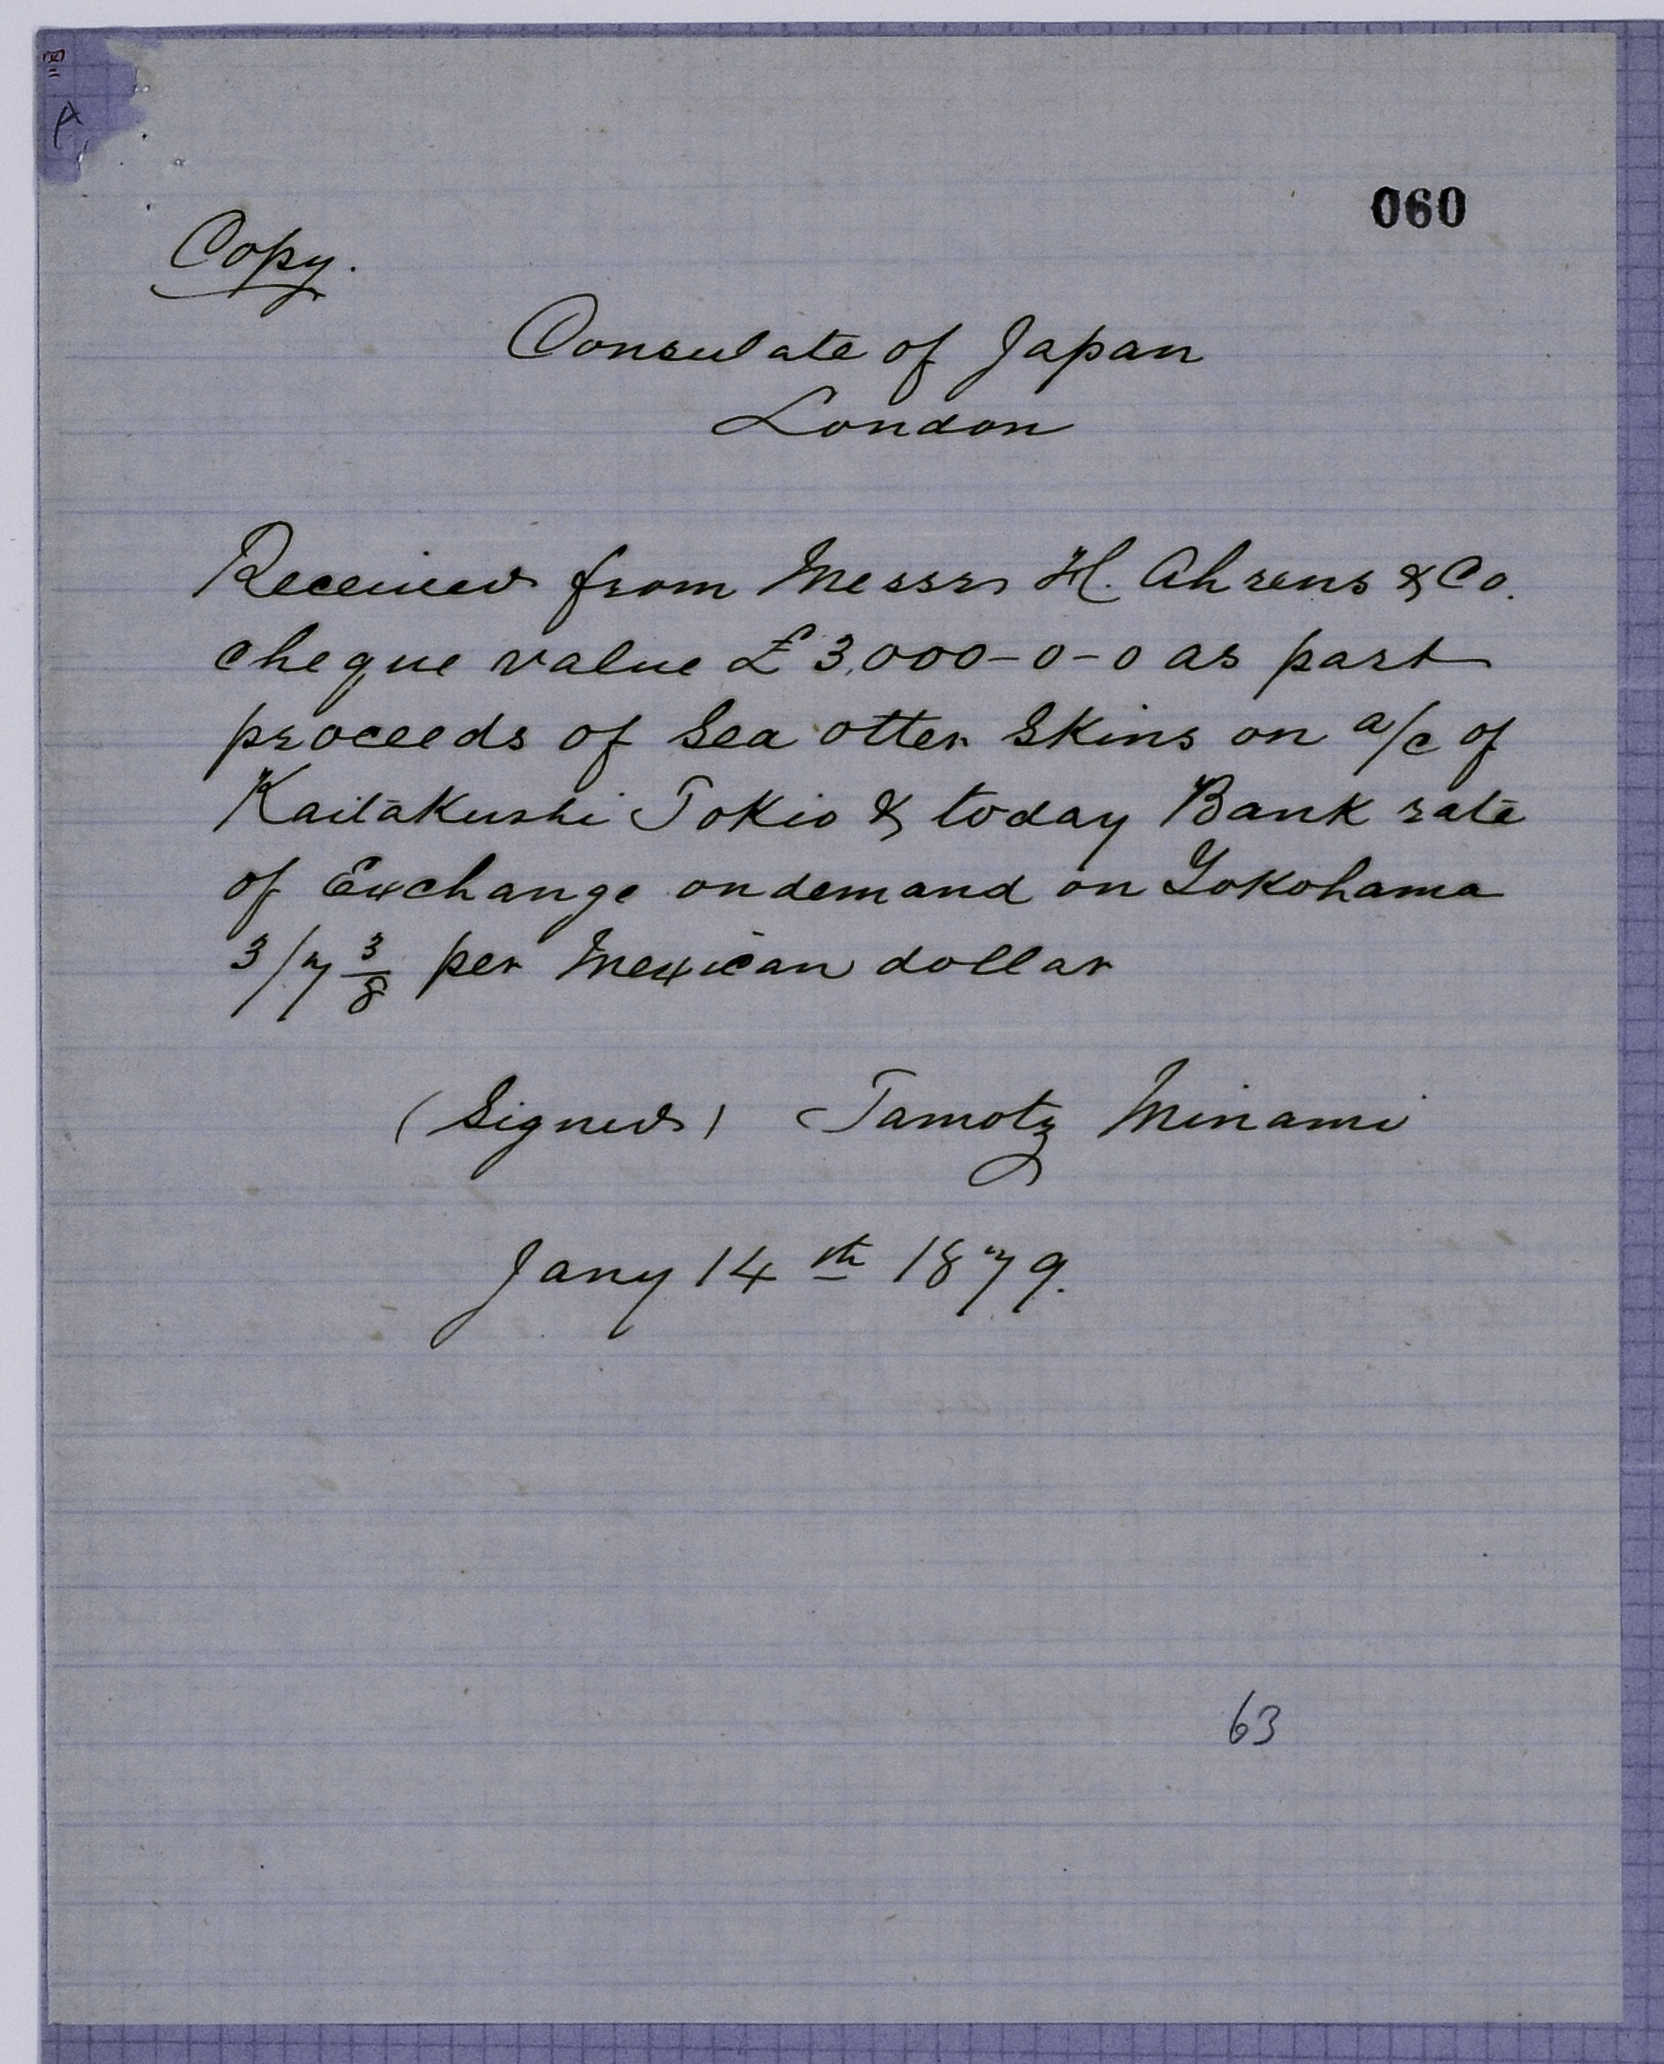 060
Copy.
Consulate of Japan
London
Received from Messrs H. Ahrens & Co.
cheque value £3,000-0-0 as part
proceeds of Sea otter Skins on a/c of
Kaitakushi Tokio & today Bank rate
of Exchange on demand on Yokohama
3/7 3/8 per Mexican dollar
(Signed) Tamotz Minami
Jany 14th 1879.
63